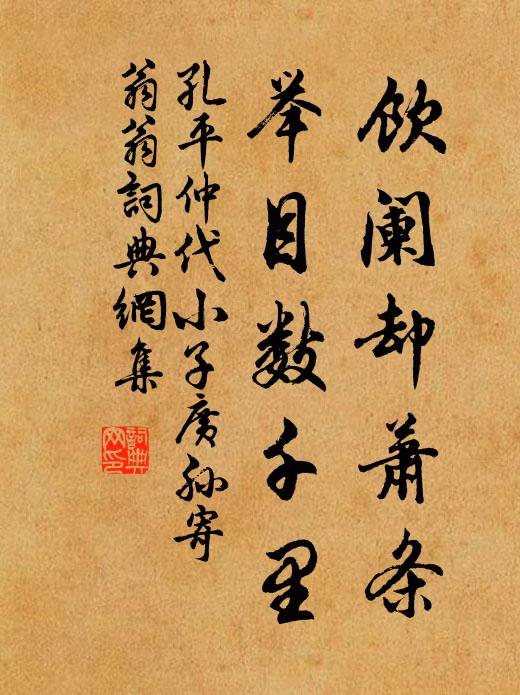 饮阑却萧条
举目数千里
孔平仲代小子广孙寄
翁翁詞典網集
詞典
网印